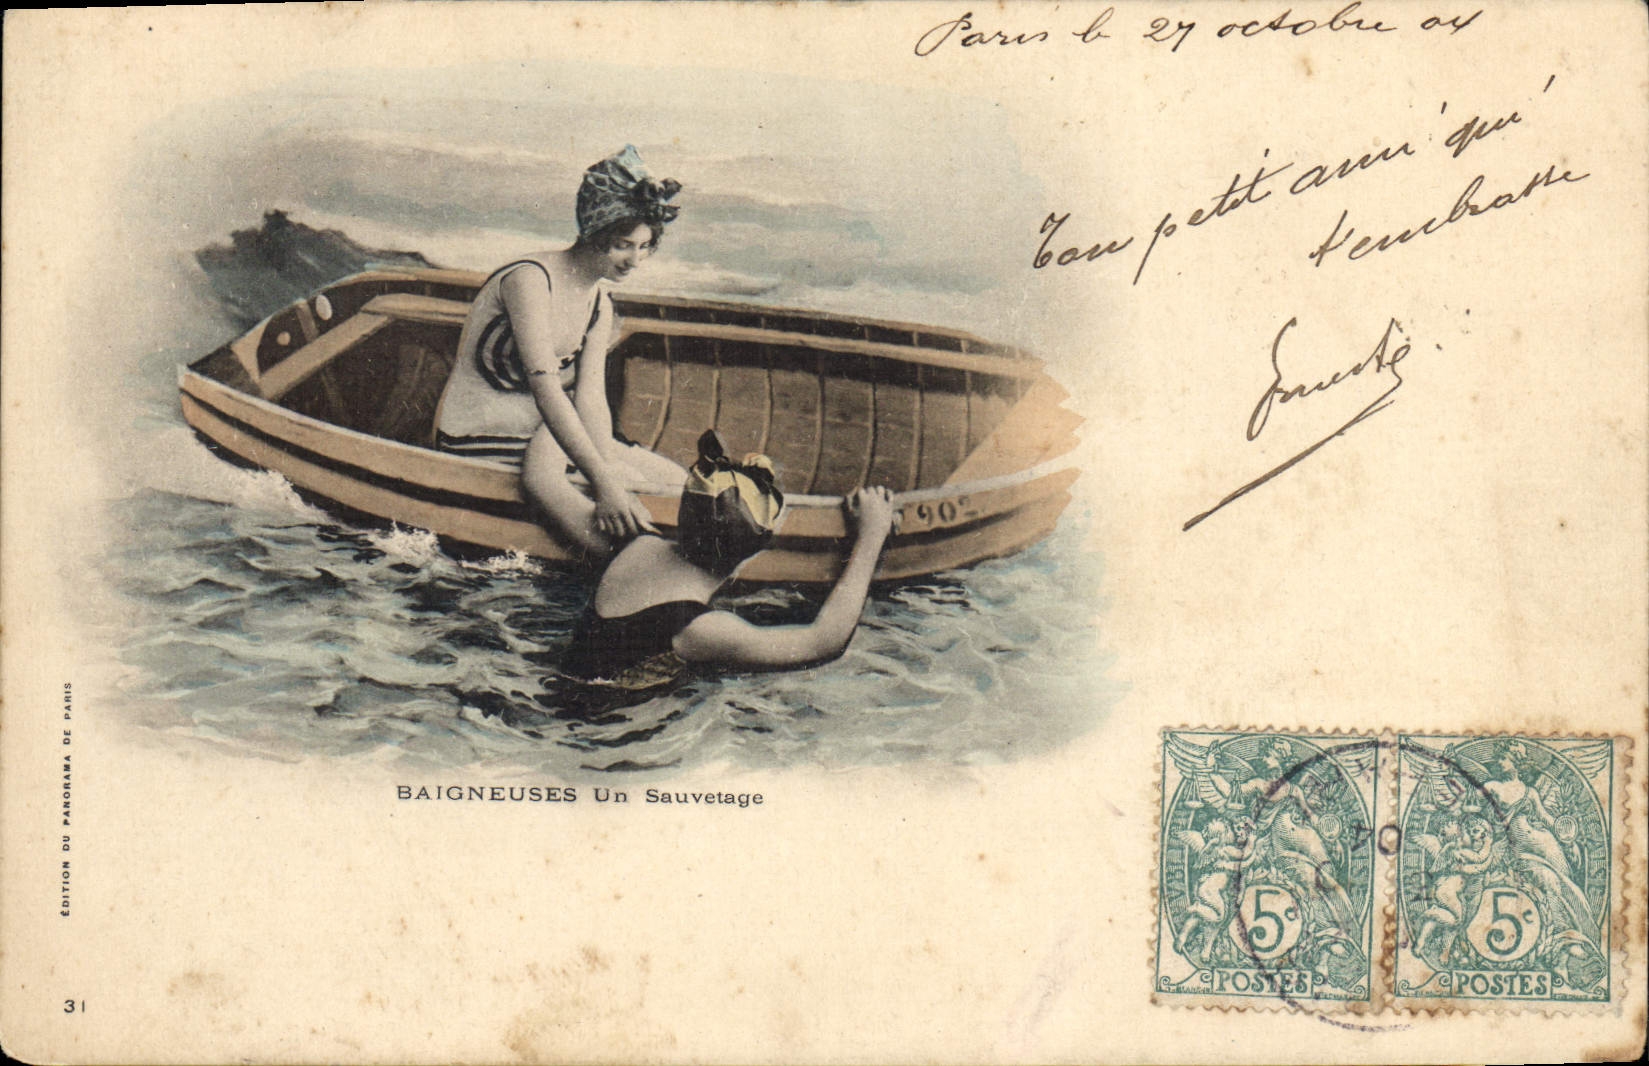 Paris le 27 octobre 04
Ton petit ami qui
t'embrasse
Ernest
902
BAIGNEUSES Un Sauvetage
ÉDITION DU PANORAMA DE PARIS
31
5c
POSTES
5c
POSTES
04